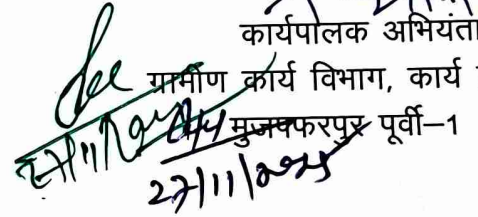 कार्यपालक अभियंता
ग्रामीण कार्य विभाग, कार्य
मुजफ्फरपुर पूर्वी–1
27/11/2025